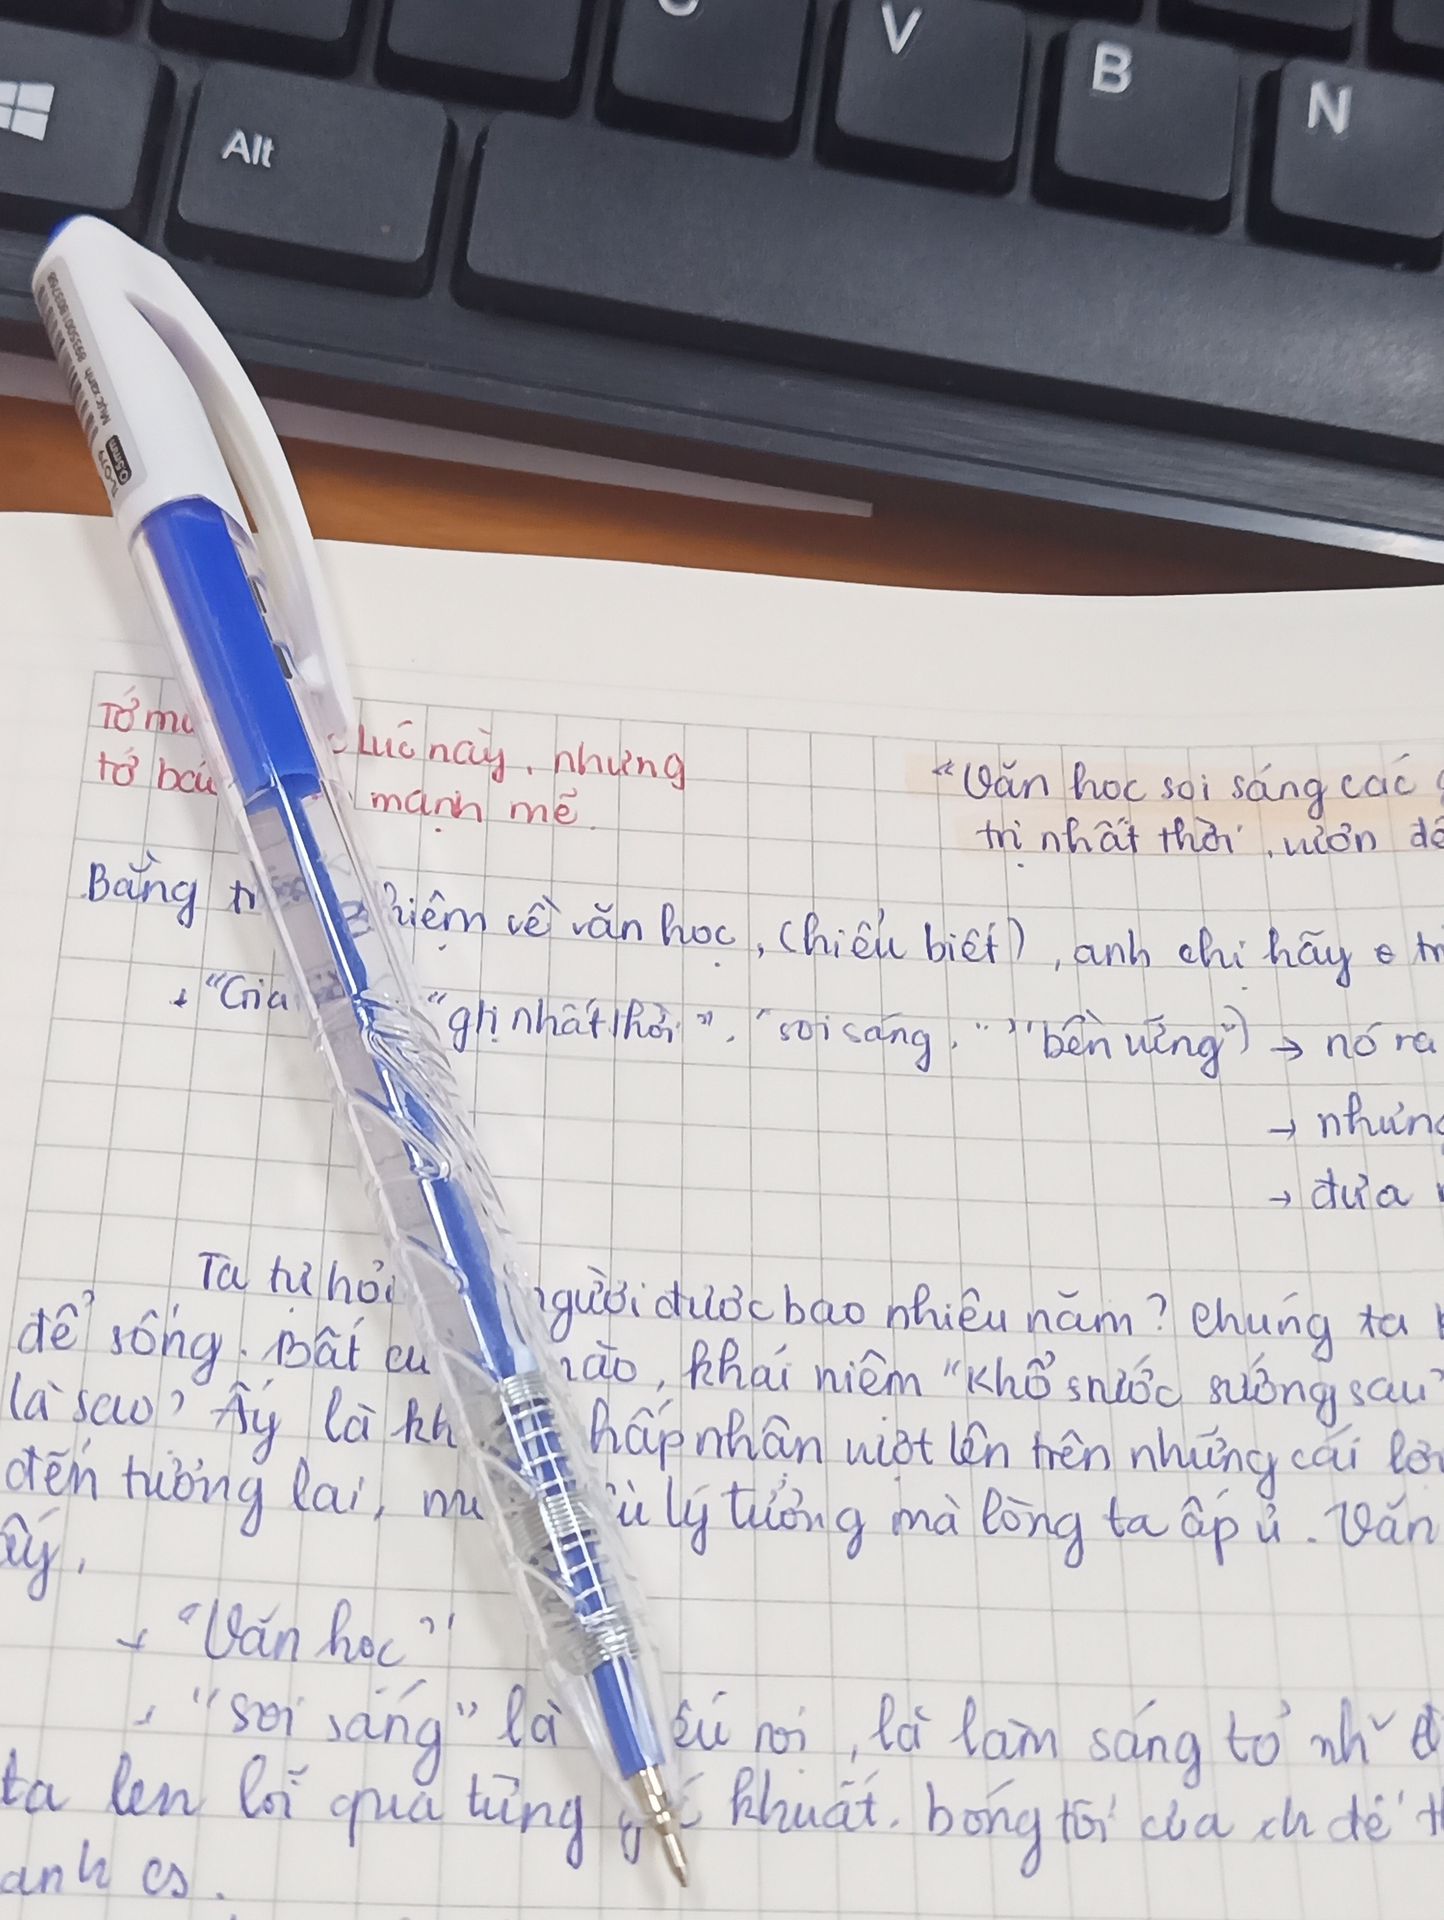 V
B
N
Alt
8935001803768
Mực xanh
0.5mm
TL-079
Tớ mu lúc này, nhưng
tớ mạnh mẽ.
"Văn học soi sáng các
trị nhất thời, vươn
Bằng về văn học, (hiểu biết), anh chị hãy
+ "Gia "nhất thời", "soi sáng," "bền vững") → nó ra
→ nhưng
→ đưa
Ta tự hỏi người được bao nhiêu năm? Chúng ta
để sống. Bất cứ nào, khái niệm "khổ trước sướng sau"
là sao? Ấy là nhận vượt lên trên những cái
đến tương lai, lý tưởng mà lòng ta ấp ủ. Văn
ấy.
+ "Văn học"
+ "soi sáng" là rọi, là làm sáng tỏ nh
ta len lỏi qua từng khuất, bóng tối của để
anh cs.